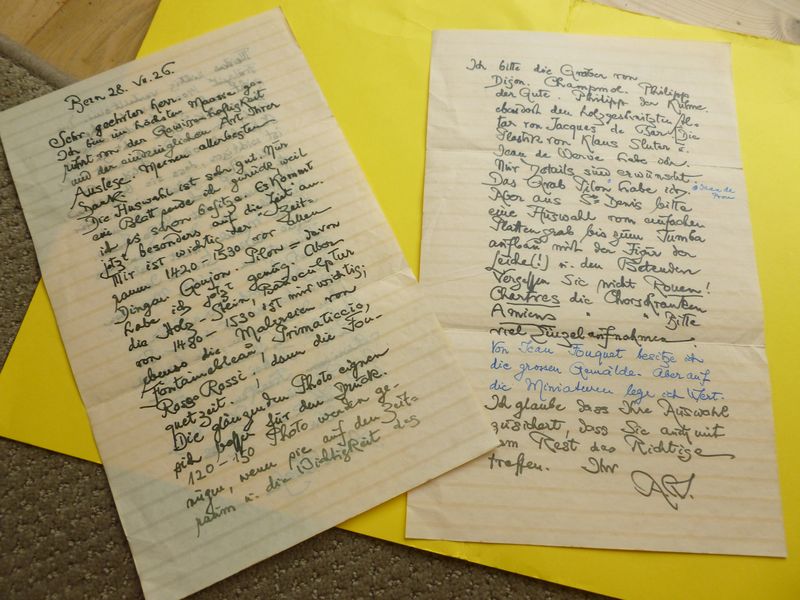 Bern 28. VII. 26.
Sehr geehrter Herr.
Ich bin im höchsten Maasse ge-
rührt von der Gewissenhaftigkeit
und der eindringlichen Art Ihrer
Auslese. Meinen allerbesten
Dank.
Die Auswahl ist sehr gut. Nur
ein Blatt sende ich zurück, weil
ich es schon besitze. Es kommt
jetzt besonders auf die Zeit an.
Mir ist wichtig der Zeit-
raum 1420-1530 vor allen
Dingen. Goujon. Pilon = davon
habe ich jetzt genug. Aber
die Holz-, Stein,
von 1480-1530 ist mir wichtig;
ebenso die Malereien von
Fontainebleau Primaticcio,
Rosso Rossi; dann die Fou-
quetzeit.
Die glänzenden Photo eignen
sich besser für den Druck.
120-150 Photo werden ge-
nügen, wenn sie auf den Zeit-
raum u. die Wichtigkeit des
Ich bitte die Gräber von
Dijon. Champmol. Philipp
der Gute. Philipp der Kühne.
ebendort den holzgeschnitzten Al-
tar von Jacques de Bar. Die
Plastik von Klaus Sluter u.
Jean de Werve habe ich.
Nur Details sind erwünscht.
Das Grab Pilon habe ich.
Aber aus St Denis bitte
eine Auswahl vom einfachen
Plattengrab bis zum Tumba
aufbau mit der Figur der
Leiche(!) u. den Betenden
Vergessen Sie nicht Rouen!
Chartres die Chorschranken
Amiens " Bitte
viel Einzelaufnahmen.
Von Jean Fouquet besitze ich
die grossen Gemälde. Aber auf
die Miniaturen lege ich Wert.
Ich glaube dass Ihre Auswahl
zusichert, dass Sie auch mit
dem Rest das Richtige
treffen. Ihr